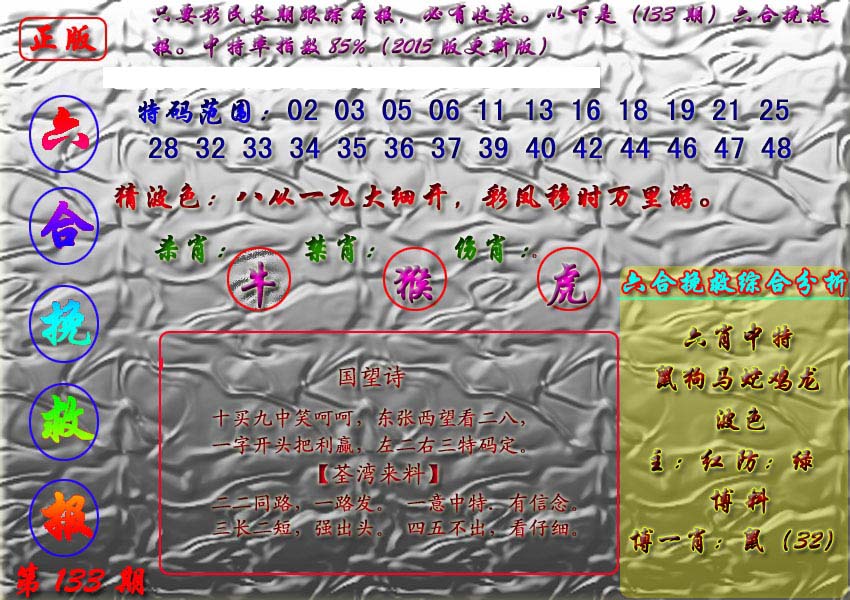 正版
只要彩民长期跟踪本报，必有收获。以下是（133 期）六合挽救
报。中特率指数 85%（2015 版更新版）
六合挽救报
第 133 期
特码范围：02 03 05 06 11 13 16 18 19 21 25
28 32 33 34 35 36 37 39 40 42 44 46 47 48
猜波色：八从一九大细开，彩凤移时万里游。
杀肖：牛 禁肖：猴 伤肖：虎
国望诗
十买九中笑呵呵，东张西望看二八，
一字开头把利赢，左二右三特码定。
【荃湾来料】
二二同路，一路发。 一意中特．有信念。
三长二短，强出头。 四五不出，看仔细。
六合挽救综合分析
六肖中特
鼠狗马蛇鸡龙
波色
主：红 防：绿
博料
博一肖：鼠（32）